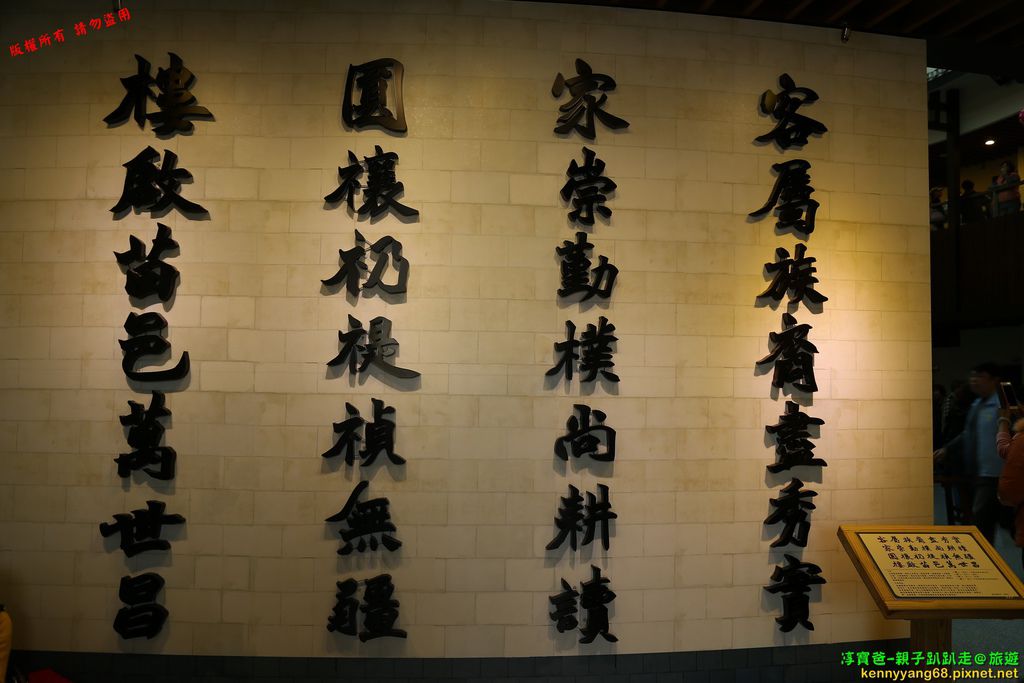 版權所有 請勿盜用
客屬族裔盡秀實
家崇勤樸尚耕讀
圓禳礽禔禎無疆
樓啟苗邑萬世昌
客屬族裔盡秀實
家崇勤樸尚耕讀
圓禳礽禔禎無疆
樓啟苗邑萬世昌
淳寶爸-親子趴趴走@旅遊
kennyyang68.pixnet.net